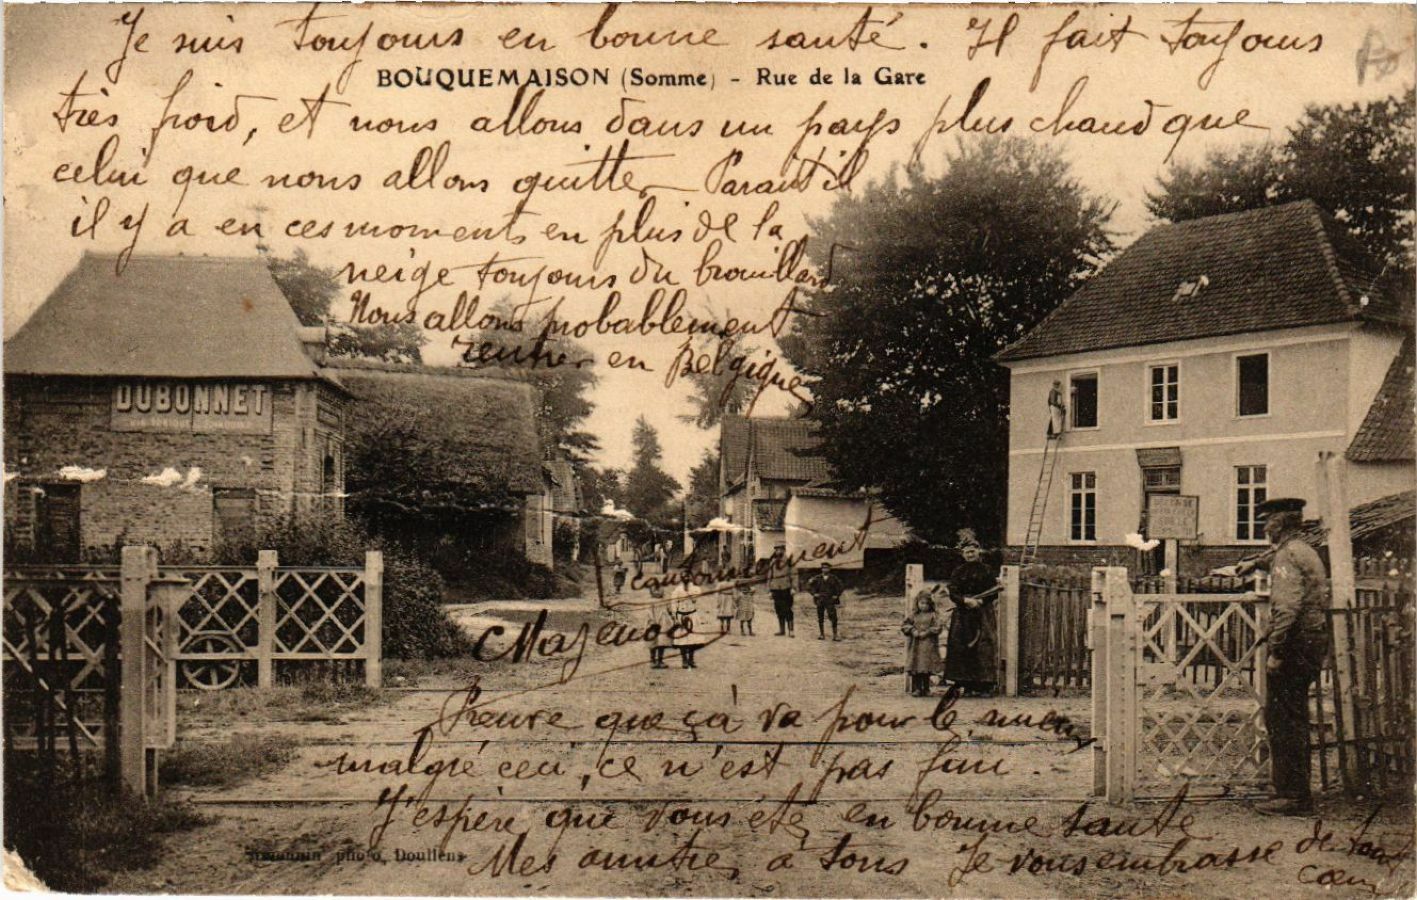 Je suis toujours en bonne santé. Il fait toujours
BOUQUEMAISON (Somme) - Rue de la Gare
très froid, et nous allons dans un pays plus chaud que
celui que nous allons quitter Parait il
il y a en ces moments en plus de la
neige toujours du brouillard
Nous allons probablement
rentrer en Belgique
DUBONNET
cantonnement
Preuve que ça va pour le mieux
malgré ceci, ce n'est pas fini.
J'espère que vous été en bonne santé
photo, Doullens
Mes amitiés à tous Je vous embrasse de tout
coeur